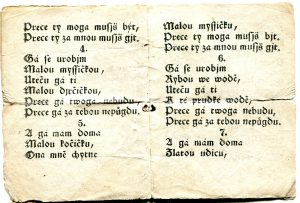 Prece ty moga musýš být,
Prece ty za mnou musýš gjt.
4.
Gá se urobjm
Malou myssičkou,
Uteču gá ti
Malou djrčičkou,
Prece gá twoga nebudu,
Prece gá za tebou nepůgdu.
5.
A gá mám doma
Malou kočičku,
Ona mně chytne
Malou myssičku,
Prece ty moga musýš být,
Prece ty za mnou musýš gjt.
6.
Gá se urobjm
Rybou we wodě,
Uteču gá ti
K té prudké wodě,
Prece gá twoga nebudu,
Prece gá za tebou nepůgdu.
7.
A gá mám doma
Zlatou udicu,